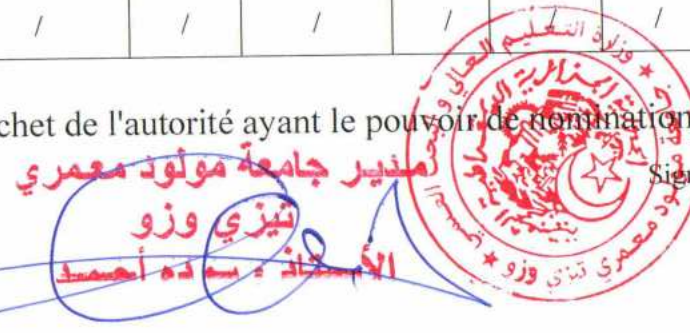 / / / / /
chet de l'autorité ayant le pouvoir de nomination
Sign
مدير جامعة مولود معمري
تيزي وزو
الأستاذ : بوده أحمد
وزارة التعليم العالي و البحث العلمي
معمري تيزي وزو